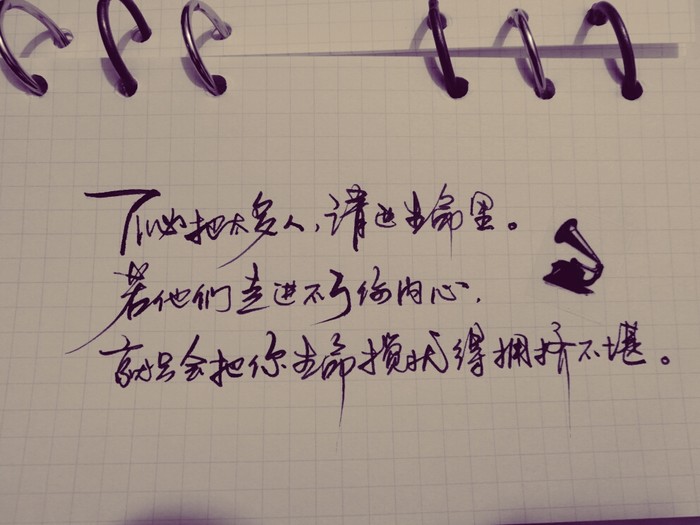 不必把太多人,请进生命里。
若他们走进不了你内心,
就只会把你生命搅扰得拥挤不堪。